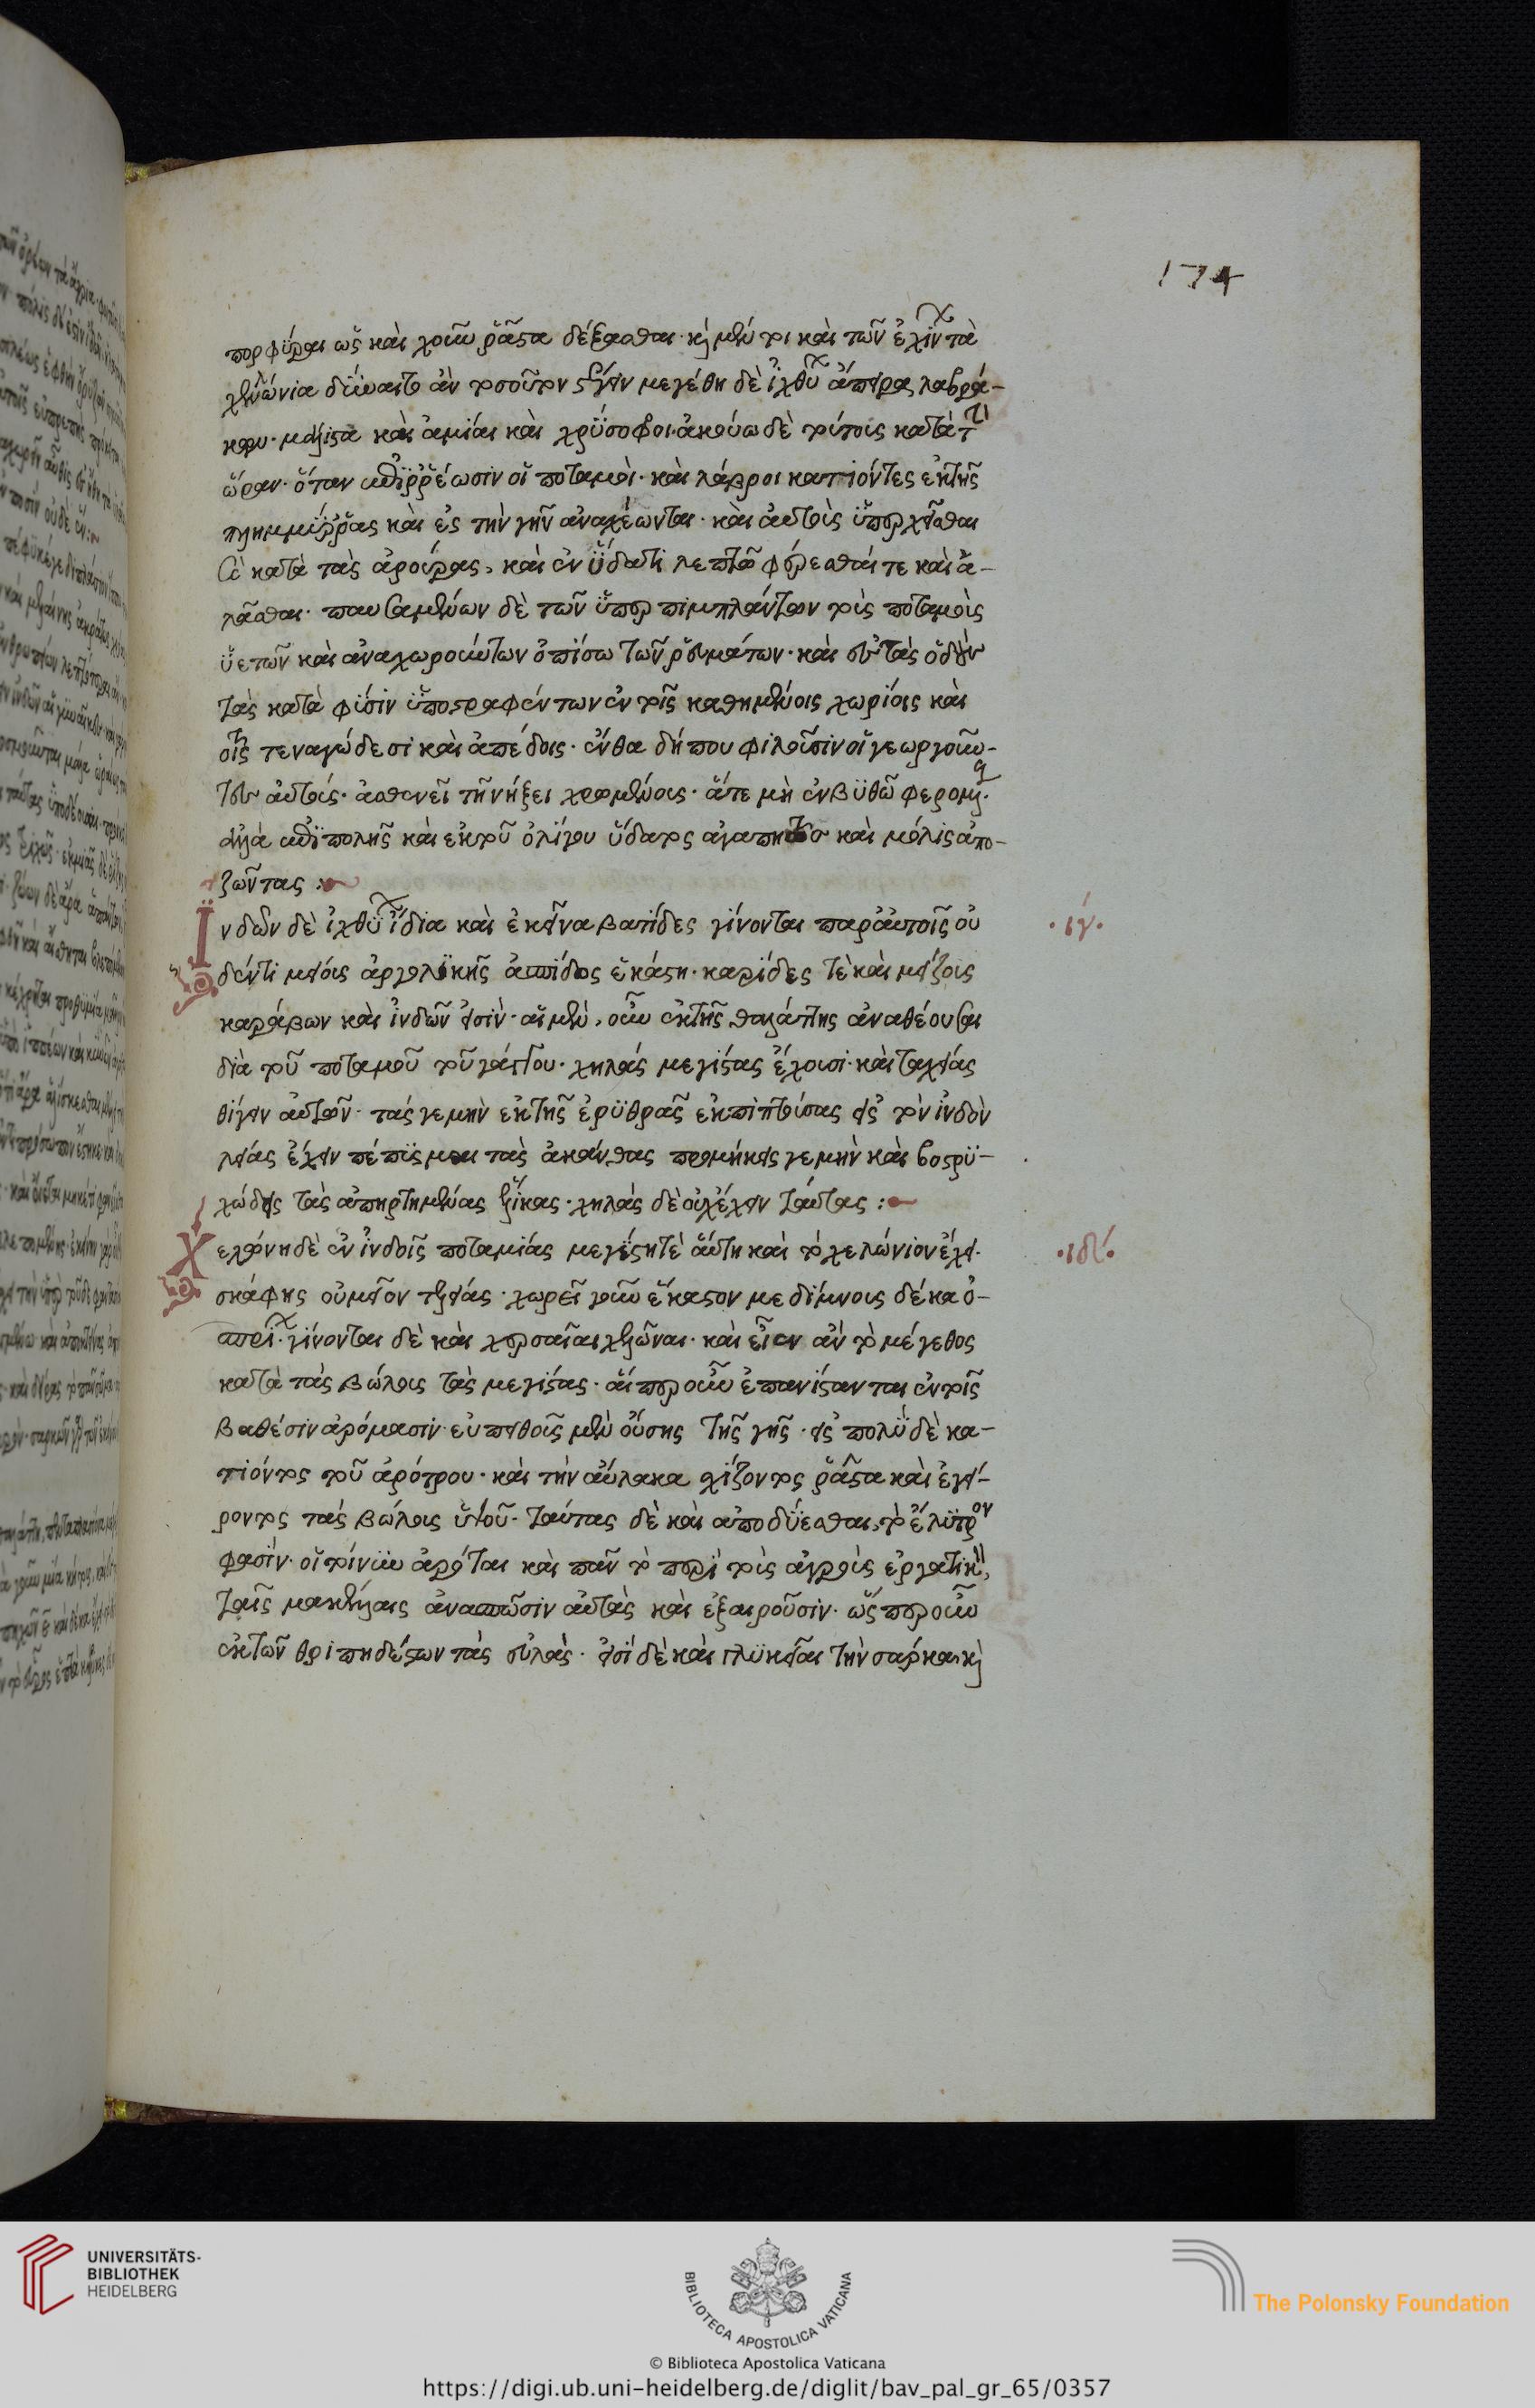 174
πορφύραι ὡς καὶ χοῦν ῥᾷστα δέξασθαι. καὶ μέντοι καὶ τῶν ἐχίνων τὰ
χελώνια δύναιτο ἂν τοσοῦτον στέγειν μεγέθη δὲ ἰχθύων ἄπειρα λαβρά-
κων. μάλιστα καὶ ἀμίαι καὶ χρύσοφοι. ἀκούω δὲ τούτους κατὰ τὴν
ὥραν. ὅταν ἐπιρρέωσιν οἱ ποταμοὶ. καὶ λάβροι κατιόντες ἐκ τῆς
πλημμύρας καὶ ἐς τὴν γῆν ἀναχέωνται. καὶ αὐτοὺς ὑπερχεῖσθαι
κατὰ τὰς ἀρούρας, καὶ ἐν ὕδατι λεπτῷ φέρεσθαί τε καὶ ἀ-
λᾶσθαι. παυσαμένων δὲ τῶν ὑπερπιμπλάντων τοὺς ποταμοὺς
ὑετῶν καὶ ἀναχωρούντων ὀπίσω τῶν ῥευμάτων. καὶ εἰς τὰς ὁδοὺς
τὰς κατὰ φύσιν ὑποστραφέντων ἐν τοῖς καθημένοις χωρίοις καὶ
τοῖς τεναγώδεσι καὶ ἀπέδοις. ἔνθα δήπου φιλοῦσιν οἱ γεωργοῦν-
τες αὐτούς. ἀσθενεῖ τῇ νήξει χρωμένους. ἅτε μὴ ἐν βυθῷ φερομένους.
ἀλλὰ ἐπιπολῆς καὶ ἐκ τοῦ ὀλίγου ὕδατος ἀγαπητῶς καὶ μόλις ἀπο-
ζῶντας :
Ἰνδῶν δὲ ἰχθύων ἴδια καὶ ἐκεῖνα βατίδες γίνονται παρ' αὐτοῖς οὐ ·ιγ·
δέντι μείους ἀργολικῆς ἀσπίδος ἑκάστη. καρίδες τὲ καὶ μείζους
καράβων καὶ ἰνδῶν εἰσὶν. αἱ μὲν, οὖν ἐκ τῆς θαλάττης ἀναθέουσαι
διὰ τοῦ ποταμοῦ τοῦ γάγγου. χηλάς μεγίστας ἔχουσι. καὶ ταχείας
θίγειν αὐτῶν. τάς γε μὴν ἐκ τῆς ἐρυθρᾶς ἐκπιπτούσας εἰς τὸν ἰνδὸν
λείας ἔχειν πέπυσμαι τὰς ἀκάνθας προμήκεις γε μὴν καὶ βοστρυ-
χώδεις τὰς ἀπηρτημένας ἕλικας. χηλὰς δὲ οὐκ ἔχειν ταύτας :
Χελώνη δὲ ἐν ἰνδοῖς ποταμίας μεγίστη τὲ αὕτη καὶ τὸ χελώνιον ἔχει. ·ιδ·
σκάφης οὐ μεῖον τελείας. χωρεῖ γοῦν ἕκαστον μεδίμνους δέκα ὀ-
σπρίων. γίνονται δὲ καὶ χερσαῖαι χελῶναι. καὶ εἶεν ἂν τὸ μέγεθος
κατὰ τὰς βώλους τὰς μεγίστας. αἵπερ οὖν ἐπανίστανται ἐν τοῖς
βαθέσιν ἀρόμασιν εὐπειθοῦς μὲν οὔσης τῆς γῆς. εἰς πολὺ δὲ κα-
τιόντος τοῦ ἀρότρου. καὶ τὴν αὔλακα σχίζοντος ῥᾷστα καὶ ἐγεί-
ροντος τάς βώλους ὑψοῦ. ταύτας δὲ καὶ ἀποδύεσθαι, τὸ ἔλυτρον
φασίν. οἱ τοίνυν ἀρόται καὶ πᾶν τὸ περὶ τοὺς ἀγροὺς ἐργατικὸν,
ταῖς μακέλλαις ἀνασπῶσιν αὐτὰς καὶ ἐξαιροῦσιν. ὥσπερ οὖν
ἐκ τῶν θριπηδέστων τὰς εὐλάς. εἰσὶ δὲ καὶ γλυκεῖαι τὴν σάρκα. καὶ
UNIVERSITÄTS-
BIBLIOTHEK
HEIDELBERG
BIBLIOTECA APOSTOLICA VATICANA
The Polonsky Foundation
© Biblioteca Apostolica Vaticana
https://digi.ub.uni-heidelberg.de/diglit/bav_pal_gr_65/0357